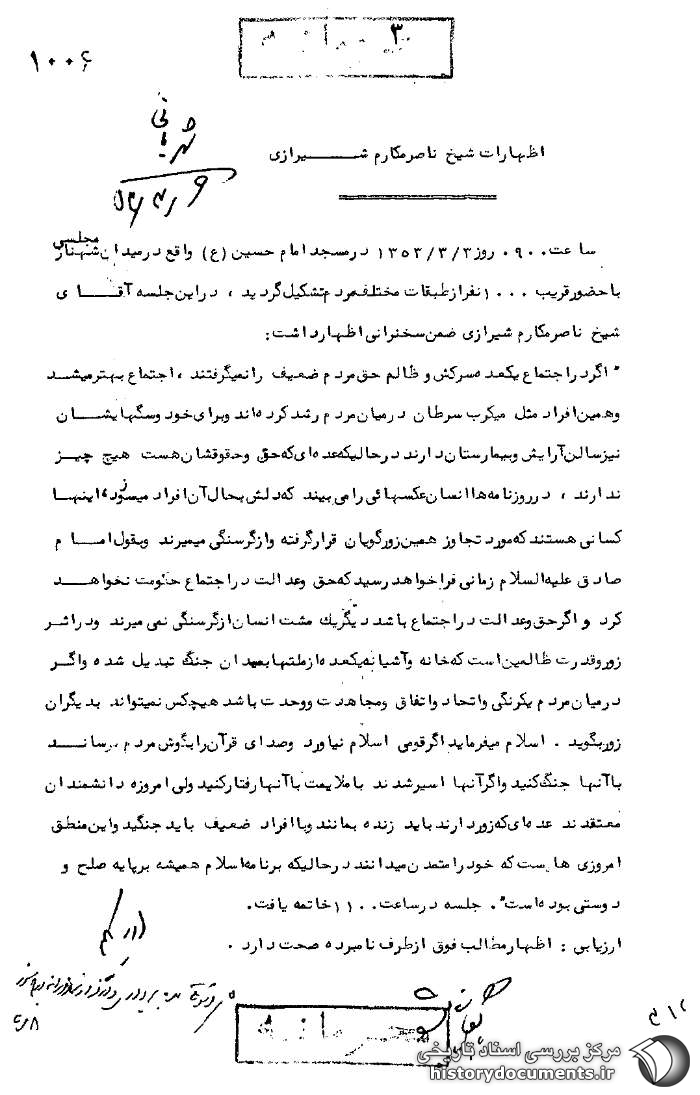 ۳
محرمانه
۱۰۰۶
اظهارات شیخ ناصر مکارم شیرازی
ساعت ۰۹۰۰ روز ۱۳۵۳/۳/۳ در مسجد امام حسین (ع) واقع در میدان شهناز مجلسی
با حضور قریب ۱۰۰۰ نفر از طبقات مختلف مردم تشکیل گردید ، در این جلسه آقای
شیخ ناصر مکارم شیرازی ضمن سخنرانی اظهار داشت:
" اگر در اجتماع یکعده سرکش و ظالم حق مردم ضعیف را نمیگرفتند ، اجتماع بهتر میشد
و همین افراد مثل میکرب سرطان در میان مردم رشد کرده اند و برای خود و سگهایشان
نیز سالن آرایش و بیمارستان دارند در حالیکه عده ای که حق و حقوقشان هست هیچ چیز
ندارند ، در روزنامه ها انسان عکسهائی را می بیند که دلش بحال آن افراد میسوزد، اینها
کسانی هستند که مورد تجاوز همین زورگویان قرار گرفته و از گرسنگی میمیرند و بقول امام
صادق علیه السلام زمانی فرا خواهد رسید که حق و عدالت در اجتماع حکومت نخواهد
کرد و اگر حق و عدالت در اجتماع باشد دیگر یک مشت انسان از گرسنگی نمی میرند و در اثر
زور و قدرت ظالمین است که خانه و آشیانه یکعده از ملتها بمیدان جنگ تبدیل شده و اگر
در میان مردم یکرنگی و اتحاد و اتفاق و مجاهدت و وحدت باشد هیچکس نمیتواند بدیگران
زور بگوید . اسلام میفرماید اگر قومی اسلام نیاورد و صدای قرآن را بگوش مردم نرسانند
با آنها جنگ کنید و اگر آنها اسیر شدند با ملایمت با آنها رفتار کنید ولی امروزه دانشمندان
معتقدند عده ای که زور دارند باید زنده بمانند و با افراد ضعیف باید جنگید و این منطق
امروزی هاست که خود را متمدن میدانند در حالیکه برنامه اسلام همیشه بر پایه صلح و
دوستی بوده است". جلسه در ساعت ۱۱۰۰ خاتمه یافت.
ارزیابی : اظهار مطالب فوق از طرف نامبرده صحت دارد .
محرمانه
۳۱۲
مرکز بررسی اسناد تاریخی
historydocuments.ir